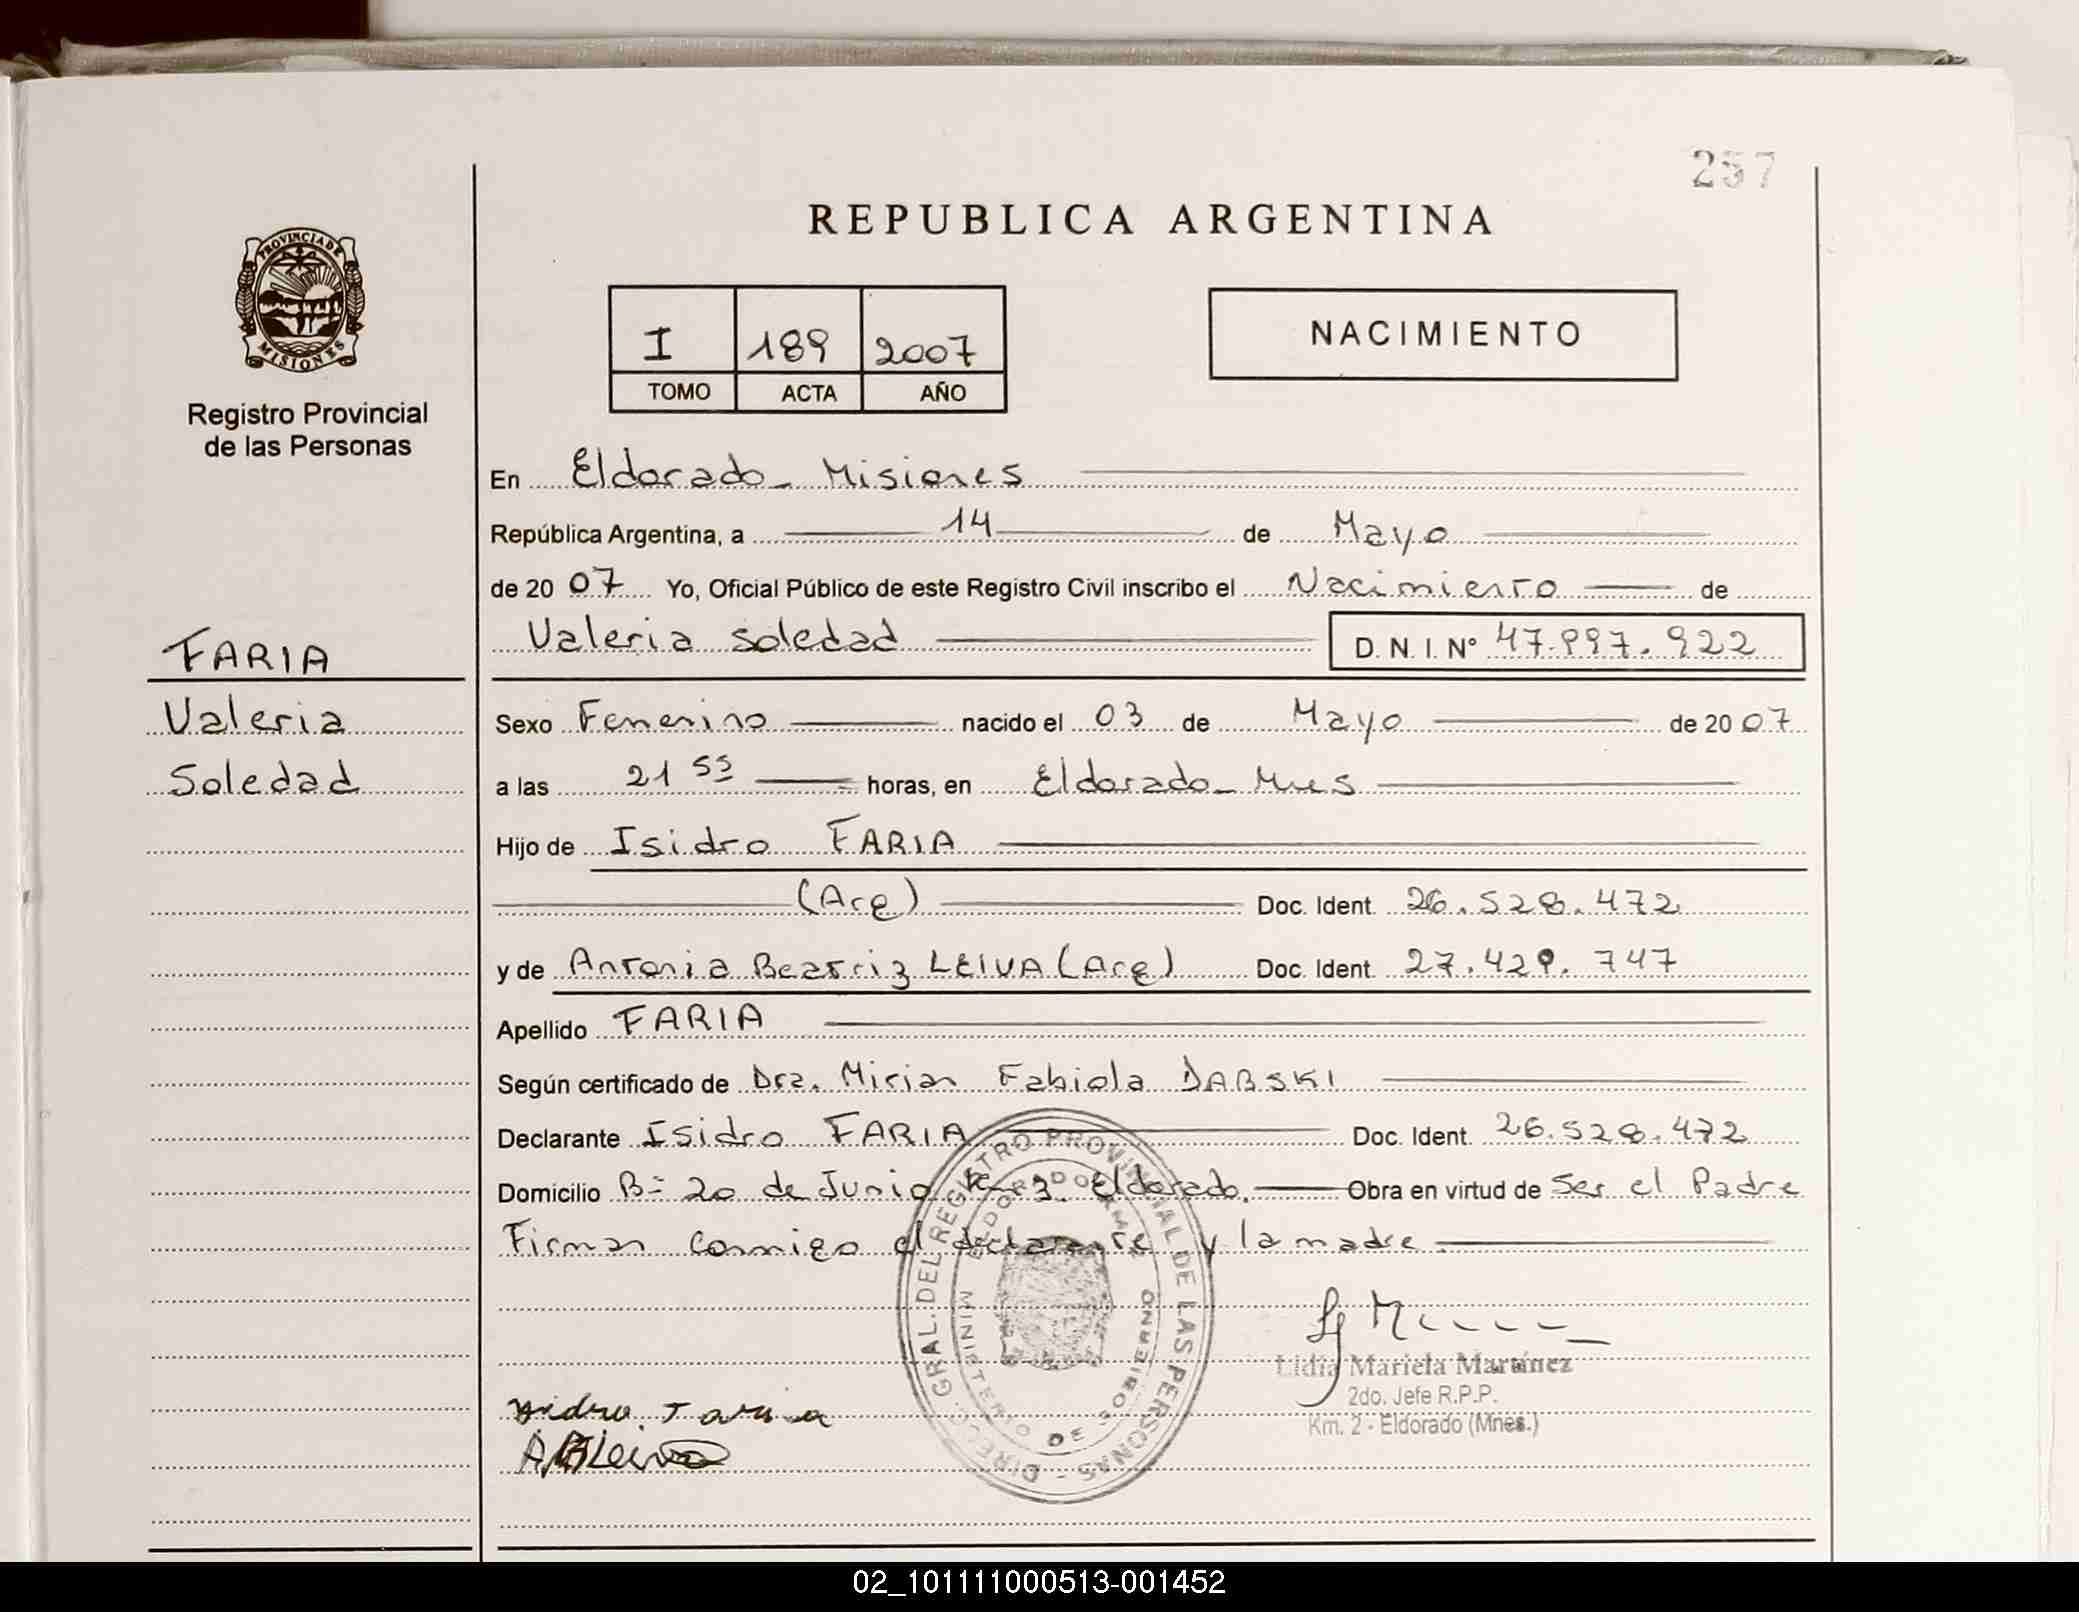 257
REPUBLICA ARGENTINA
PROVINCIA DE MISIONES
I 189 2007
TOMO ACTA AÑO
NACIMIENTO
Registro Provincial
de las Personas
En Eldorado - Misiones
República Argentina, a 14 de Mayo
de 20 07 Yo, Oficial Público de este Registro Civil inscribo el Nacimiento de
Valeria Soledad D. N. I. N° 47.997.922
FARIA
Valeria
Soledad
Sexo Femenino nacido el 03 de Mayo de 20 07
a las 21 53 horas, en Eldorado - Mnes
Hijo de Isidro FARIA
(Arg) Doc. Ident. 26.528.472
y de Antonia Beatriz LEIVA (Arg) Doc. Ident. 27.429.747
Apellido FARIA
Según certificado de Dra. Mirian Fabiola DABSKI
Declarante Isidro FARIA Doc. Ident. 26.528.472
Domicilio B= 20 de Junio Km 3. Eldorado. Obra en virtud de Ser el Padre
Firman conmigo el declarante y la madre.
DIREC. GRAL. DEL REGISTRO PROVINCIAL DE LAS PERSONAS
MINISTERIO DE GOBIERNO
ELDORADO
Lidia Mariela Martínez
2do. Jefe R.P.P.
Km. 2 - Eldorado (Mnes.)
Isidro Faria
A B Leiva
02_101111000513-001452